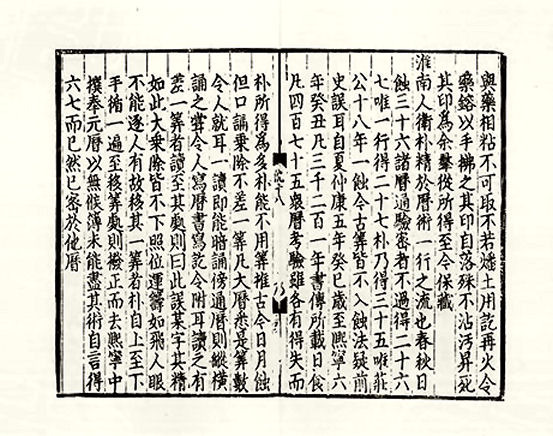 與藥相粘不可取不若燔土用訖再火令
藥鎔以手拂之其印自落殊不沾污昇死
其印為余羣從所得至今保藏
淮南人衛朴精於曆術一行之流也春秋日
蝕三十六諸曆通驗密者不過得二十六
七唯一行得二十七朴乃得三十五唯莊
公十八年一蝕今古算皆不入蝕法疑前
史誤耳自夏仲康五年癸巳歲至熙寧六
年癸丑凡三千二百一年書傳所載日食
凡四百七十五衆曆考驗雖各有得失而
朴所得為多朴能不用算推古今日月蝕
但口誦乘除不差一算凡大曆悉是算數
令人就耳一讀即能暗誦傍通曆則縱橫
誦之嘗令人寫曆書寫訖令附耳讀之有
差一算者讀至其處則曰此誤某字其精
如此大乘除皆不下照位運籌如飛人眼
不能逐人有故移其一算者朴自上至下
手循一遍至移算處則撥正而去熙寧中
撰奉元曆以無候簿未能盡其術自言得
六七而已然已密於他曆